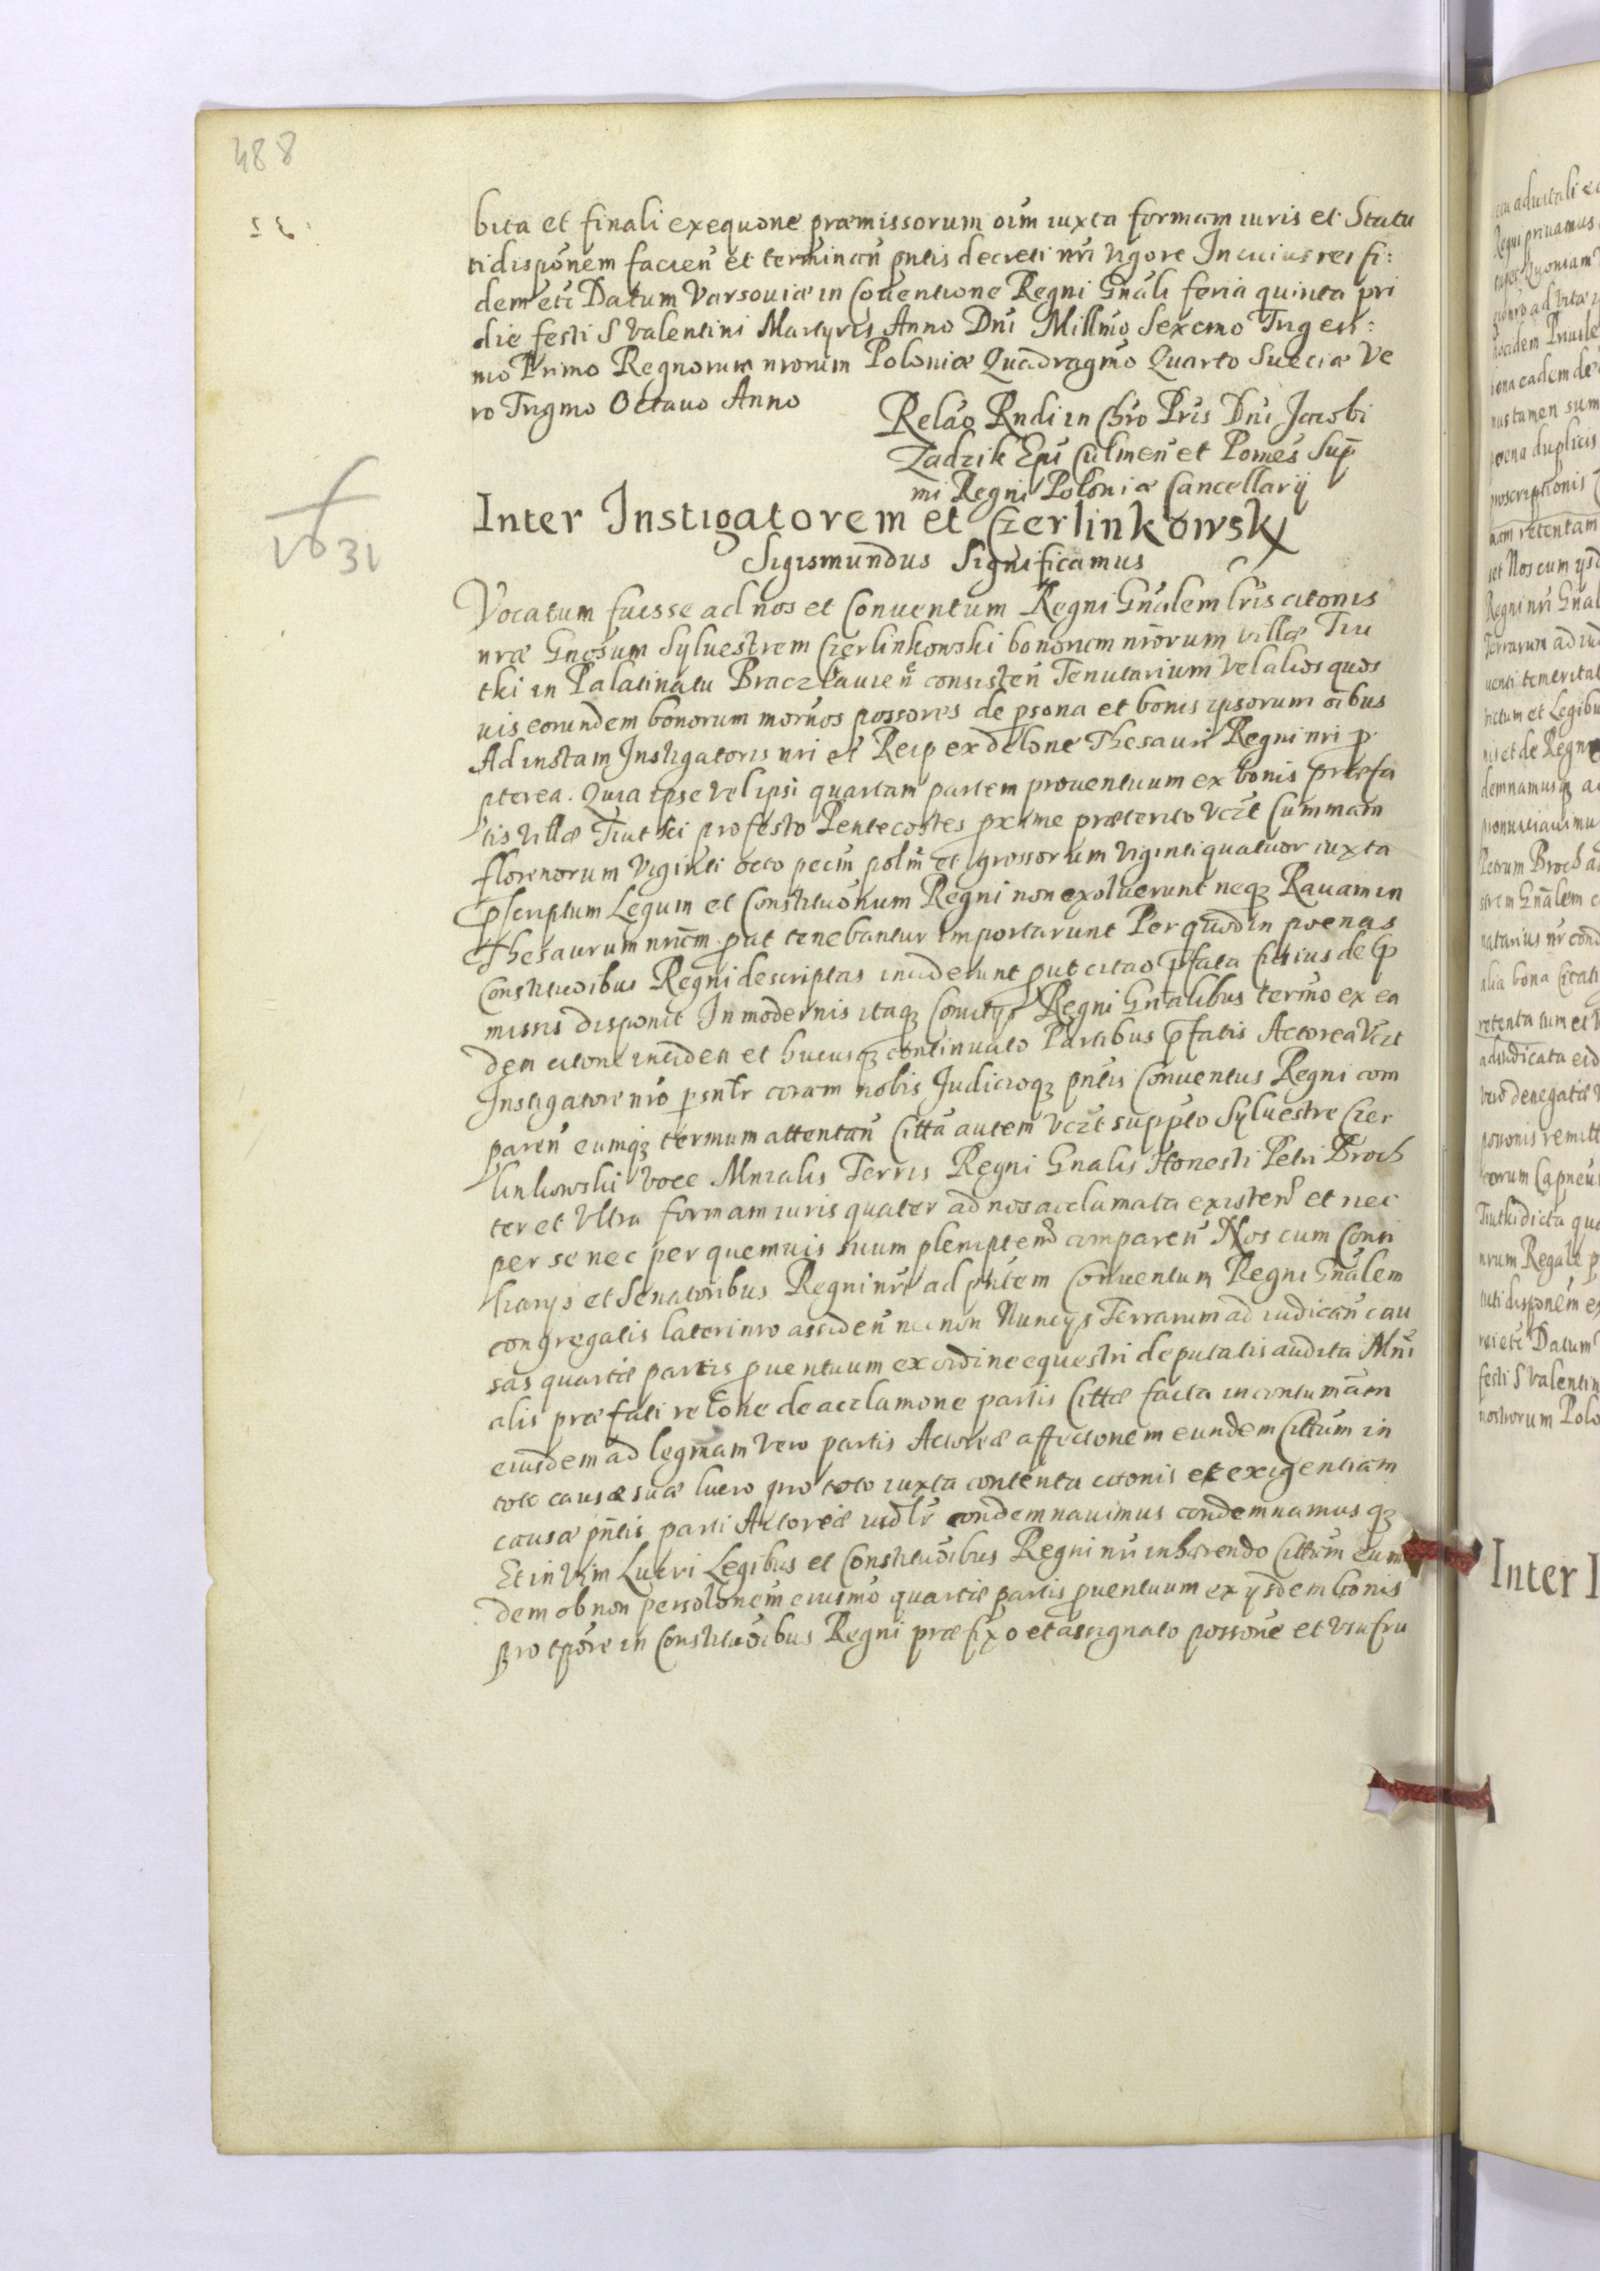 488
bita et finali exequone præmissorum oim iuxta formam iuris et Statu
ti disponem facien et terminan pntis decreti nri vigore In cuius rei fi:
dem etc Datum Varsouiæ in Couentione Regni Gnali feria quinta pri
die festi S Valentini Martyris Anno Dni Millmo Sexcmo Trigess:
mo Primo Regnorum nrorum Poloniæ Quadragmo Quarto Sueciæ Ve
ro Trigmo Octauo Anno
Relao Rndi in Chro Pris Dni Jacobi
Zadzik Epi Culmen et Pomes Sup
mi Regni Poloniæ Cancellarij
1631
Inter Instigatorem et Czerlinkowsky
Sigismundus Significamus
Vocatum fuisse ad nos et Conuentum Regni Gnalem lris citonis
nræ Gnosum Syluestrem Czerlinkowski bonorum nrorum villæ Tiu
tki in Palatinatu Braczlauien consisten Tenutarium vel alios quos
uis eorundem bonorum mornos possores de psona et bonis ipsorum oibus
Ad instam Instigatoris nri et Reip ex delone Thesauri Regni nri p
pterea. Quia ipse vel ipsi quartam partem prouentuum ex bonis præfa
tis villæ Tiutki pro festo Pentecostes pxime præterito vczt Summam
florenorum viginti octo pecin polm et grossorum viginti quatuor iuxta
pscriptum Legum et Constituonum Regni non exoluerunt neq Rauam in
Thesaurum nrum put tenebantur importarunt Per quod in poenas
Constituoibus Regni descriptas inciderunt put citao pfata fusius de p
missis disponit In modernis itaq Comitijs Regni Gnalibus termo ex ea
dem citone inciden et hucusq continuato Partibus pfatis Actorea vczt
Instigatore nro psntr coram nobis Judicioq pntis Conuentus Regni com
paren eumq termum attentan Citta autem vczt suppto Syluestre Czer
linkowski voce Mnialis Terris Regni Gnalis Honesti Petri Broch
ter et vltra formam iuris quater ad nos acclamata existen et nec
per se nec per quemuis suum plenipten comparen Nos cum Consi
liarijs et Senatoribus Regni nri ad pntem Conuentum Regni Gnalem
congregatis lateri nro assiden nec non Nuncijs Terrarum ad iudican cau
sas quartæ partis puentuum ex ordine equestri deputatis audita Mni
alis præfati relone de acclamone partis Cittæ facta in contumam
eiusdem ad legmam vero partis Actoreæ affectonem eundem Cittum in
toto causæ suæ lucro pro toto iuxta contenta citonis et exigentiam
causæ pntis parti Actoreæ iudlr condemnauimus condemnamus q
Et in vim Lucri Legibus et Constituoibus Regni nri inhærendo Cittum eun
dem ob non persolonem eiusmo quartæ partis puentuum ex ijsdem bonis
pro tpore in Constituoibus Regni præfixo et assignato possone et vsufru
Inter I